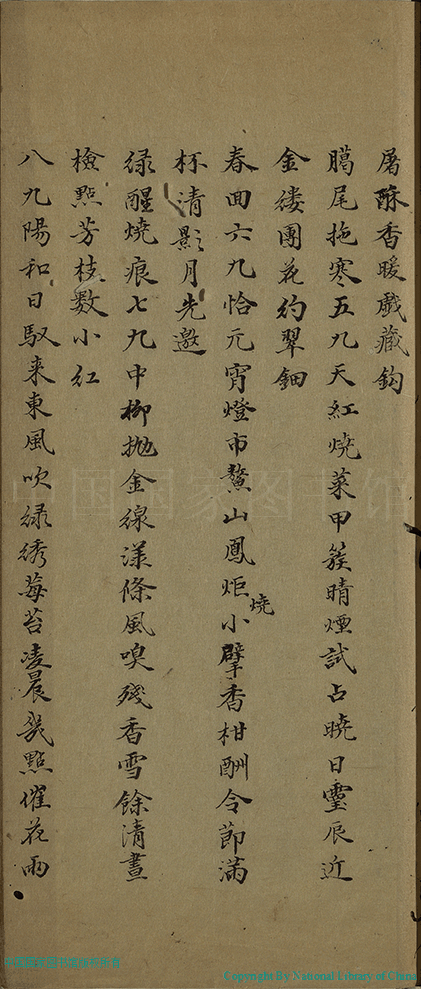 屠酥香暖戲藏鈎
臈尾拖寒五九天紅燒菜甲簇晴煙試占曉日靈辰近
金縷團花約翠鈿
春回六九恰元宵燈市鰲山鳳炬燒小擘香柑酬令節滿
杯清影月先邀
緑醒燒痕七九中柳拋金線漾條風嗅殘香雪餘清晝
檢點芳枝數小紅
八九陽和日馭来東風吹緑綉莓苔凌晨幾點催花雨
中国国家图书馆
Copyright By National Library of China